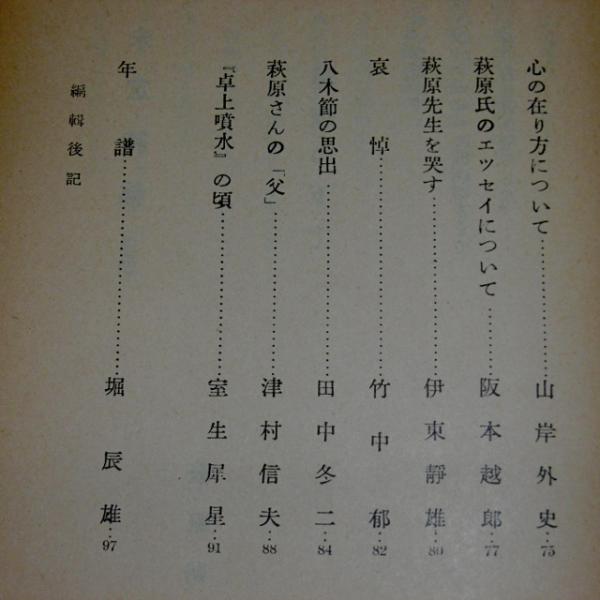 心の在り方について……山岸外史…75
萩原氏のエツセイについて……阪本越郎…77
萩原先生を哭す……伊東靜雄…80
哀悼……竹中郁…82
八木節の思出……田中冬二…84
萩原さんの「父」……津村信夫…88
『卓上噴水』の頃……室生犀星…91
年譜……堀辰雄…97
編輯後記